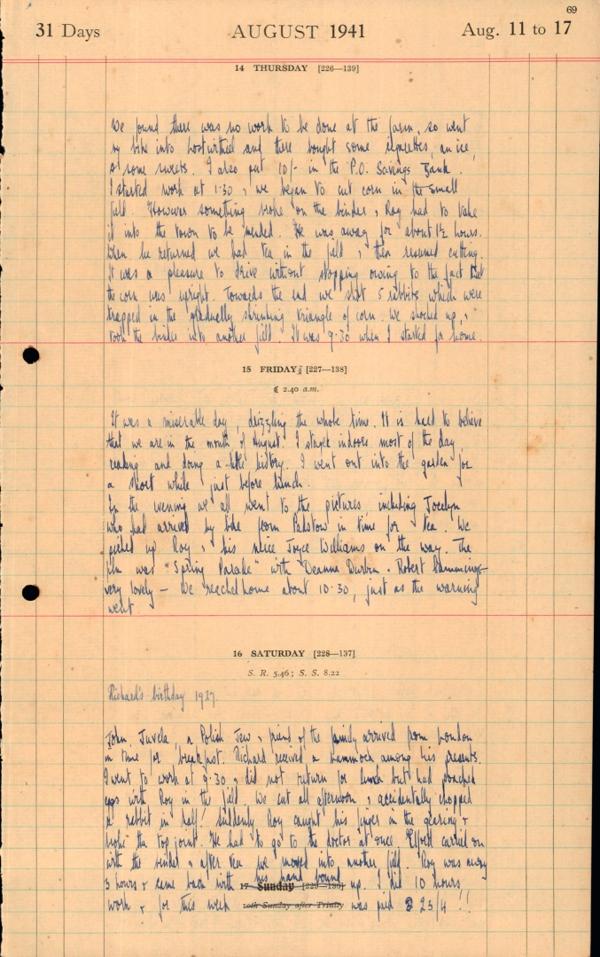 69
31 Days AUGUST 1941 Aug. 11 to 17
14 THURSDAY [226—139]
We found there was no work to be done at the farm, so went
by bike into and there bought some cigarettes, an ice,
& some sweets. I also put 10/- in the P.O. Savings Bank.
I started work at 1.30, & we began to cut corn in the small
field. However something broke on the binder, & Roy had to take
it into the town to be mended. He was away for about 1½ hours.
When he returned we had tea in the field, & then resumed cutting.
It was a pleasure to drive without stopping owing to the fact that
the corn was upright. Towards the end we shot 5 rabbits which were
trapped in the gradually shrinking triangle of corn. We shocked up, &
took the binder into another field. It was 9.30 when I started for home.
15 FRIDAY [227—138]
☾ 2.40 a.m.
It was a miserable day, drizzling the whole time. It is hard to believe
that we are in the month of August. I stayed indoors most of the day
reading and doing a little history. I went out into the garden for
a short while just before lunch.
In the evening we all went to the pictures, including Jocelyn
who had arrived by bike from Padstow in time for tea. We
picked up Roy & his niece Joyce Williams on the way. The
film was "Spring Parade" with Deanna Durbin & Robert Cummings—
very lovely — We reached home about 10.30, just as the warning
went.
16 SATURDAY [228—137]
S. R. 5.46; S. S. 8.22
Richard's birthday 1927
John, a Polish Jew & friend of the family arrived from London
in time for breakfast. Richard received a hammock among his presents.
I went to work at 9.30 & did not return for lunch but had poached
eggs with Roy in the field. We cut all afternoon, & accidentally chopped
a rabbit in half! Suddenly Roy caught his finger in the gearing &
broke the top joint. We had to go to the doctor at once. carried on
with the binder & after tea we moved into another field. Roy was away
3 hours & came back with his hand bound up. I did 10 hours'
17 Sunday [229—136]
work & for this week was paid 25/4!!
10th Sunday after Trinity